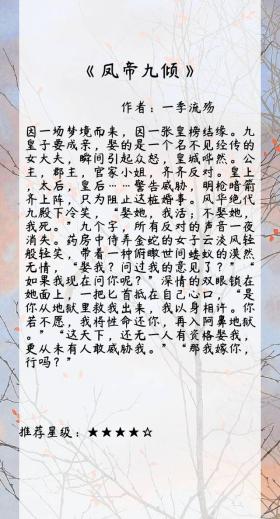 《凤帝九倾》
作者：一季流殇
因一场梦境而来，因一张皇榜结缘。九
皇子要成亲，娶的是一个名不见经传的
女大夫，瞬间引起众怒，皇城哗然。公
主，郡主，官家小姐，齐齐反对。皇上
，太后，皇后……警告威胁，明枪暗箭
齐上阵，只为阻止这桩婚事。风华绝代
九殿下冷笑，“娶她，我活；不娶她，
我死。”九个字，所有反对的声音一夜
消失。药房中侍弄金蛇的女子云淡风轻
般轻笑，带着一种俯瞰世间蝼蚁的漠然
无情，“娶我？问过我的意见了？”“
如果我现在问你呢？”深情的双眼锁在
她面上，一把匕首抵在自己心口，“是
你从地狱里救我出来，我以身相许。你
若不愿，我将性命还你，再入阿鼻地狱
。”“这天下，还无一人有资格娶我，
更从未有人敢威胁我。”“那我嫁你，
行吗？”
推荐星级：★★★★☆